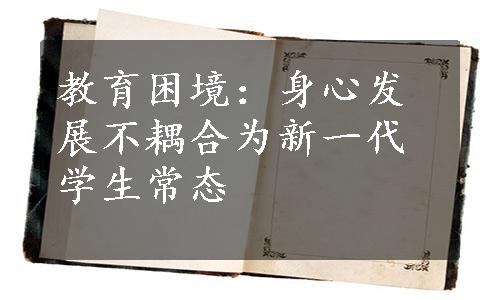 教育困境：身心发
展不耦合为新一代
学生常态